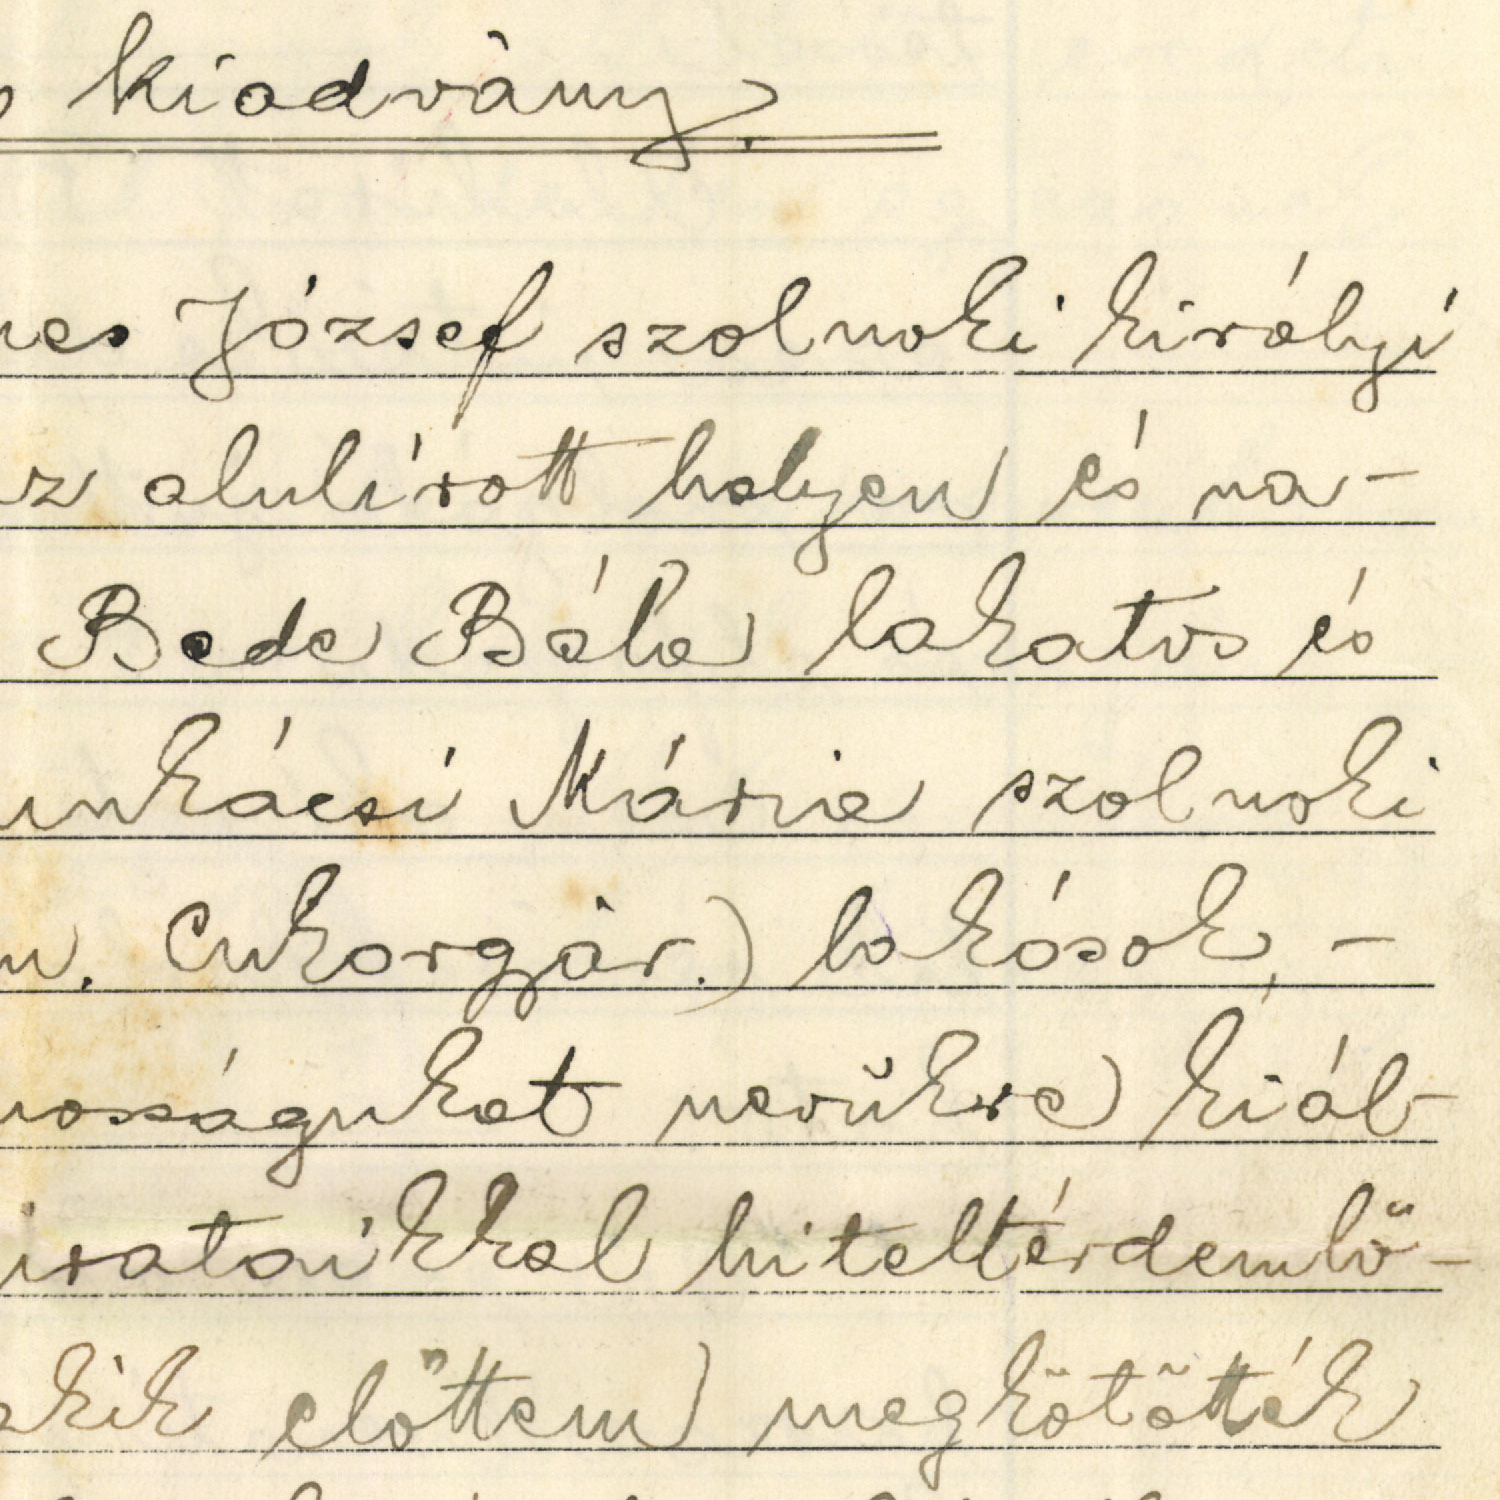 kiadvány.
József szolnoki királyi
alulírott helyen és na-
Bede Béla lakatos és
unkácsi Mária szolnoki
Cukorgyár.) lakósok, -
nosságukat nevükre kiál-
irataikkal hiteltérdemlő-
akik előttem megkötötték